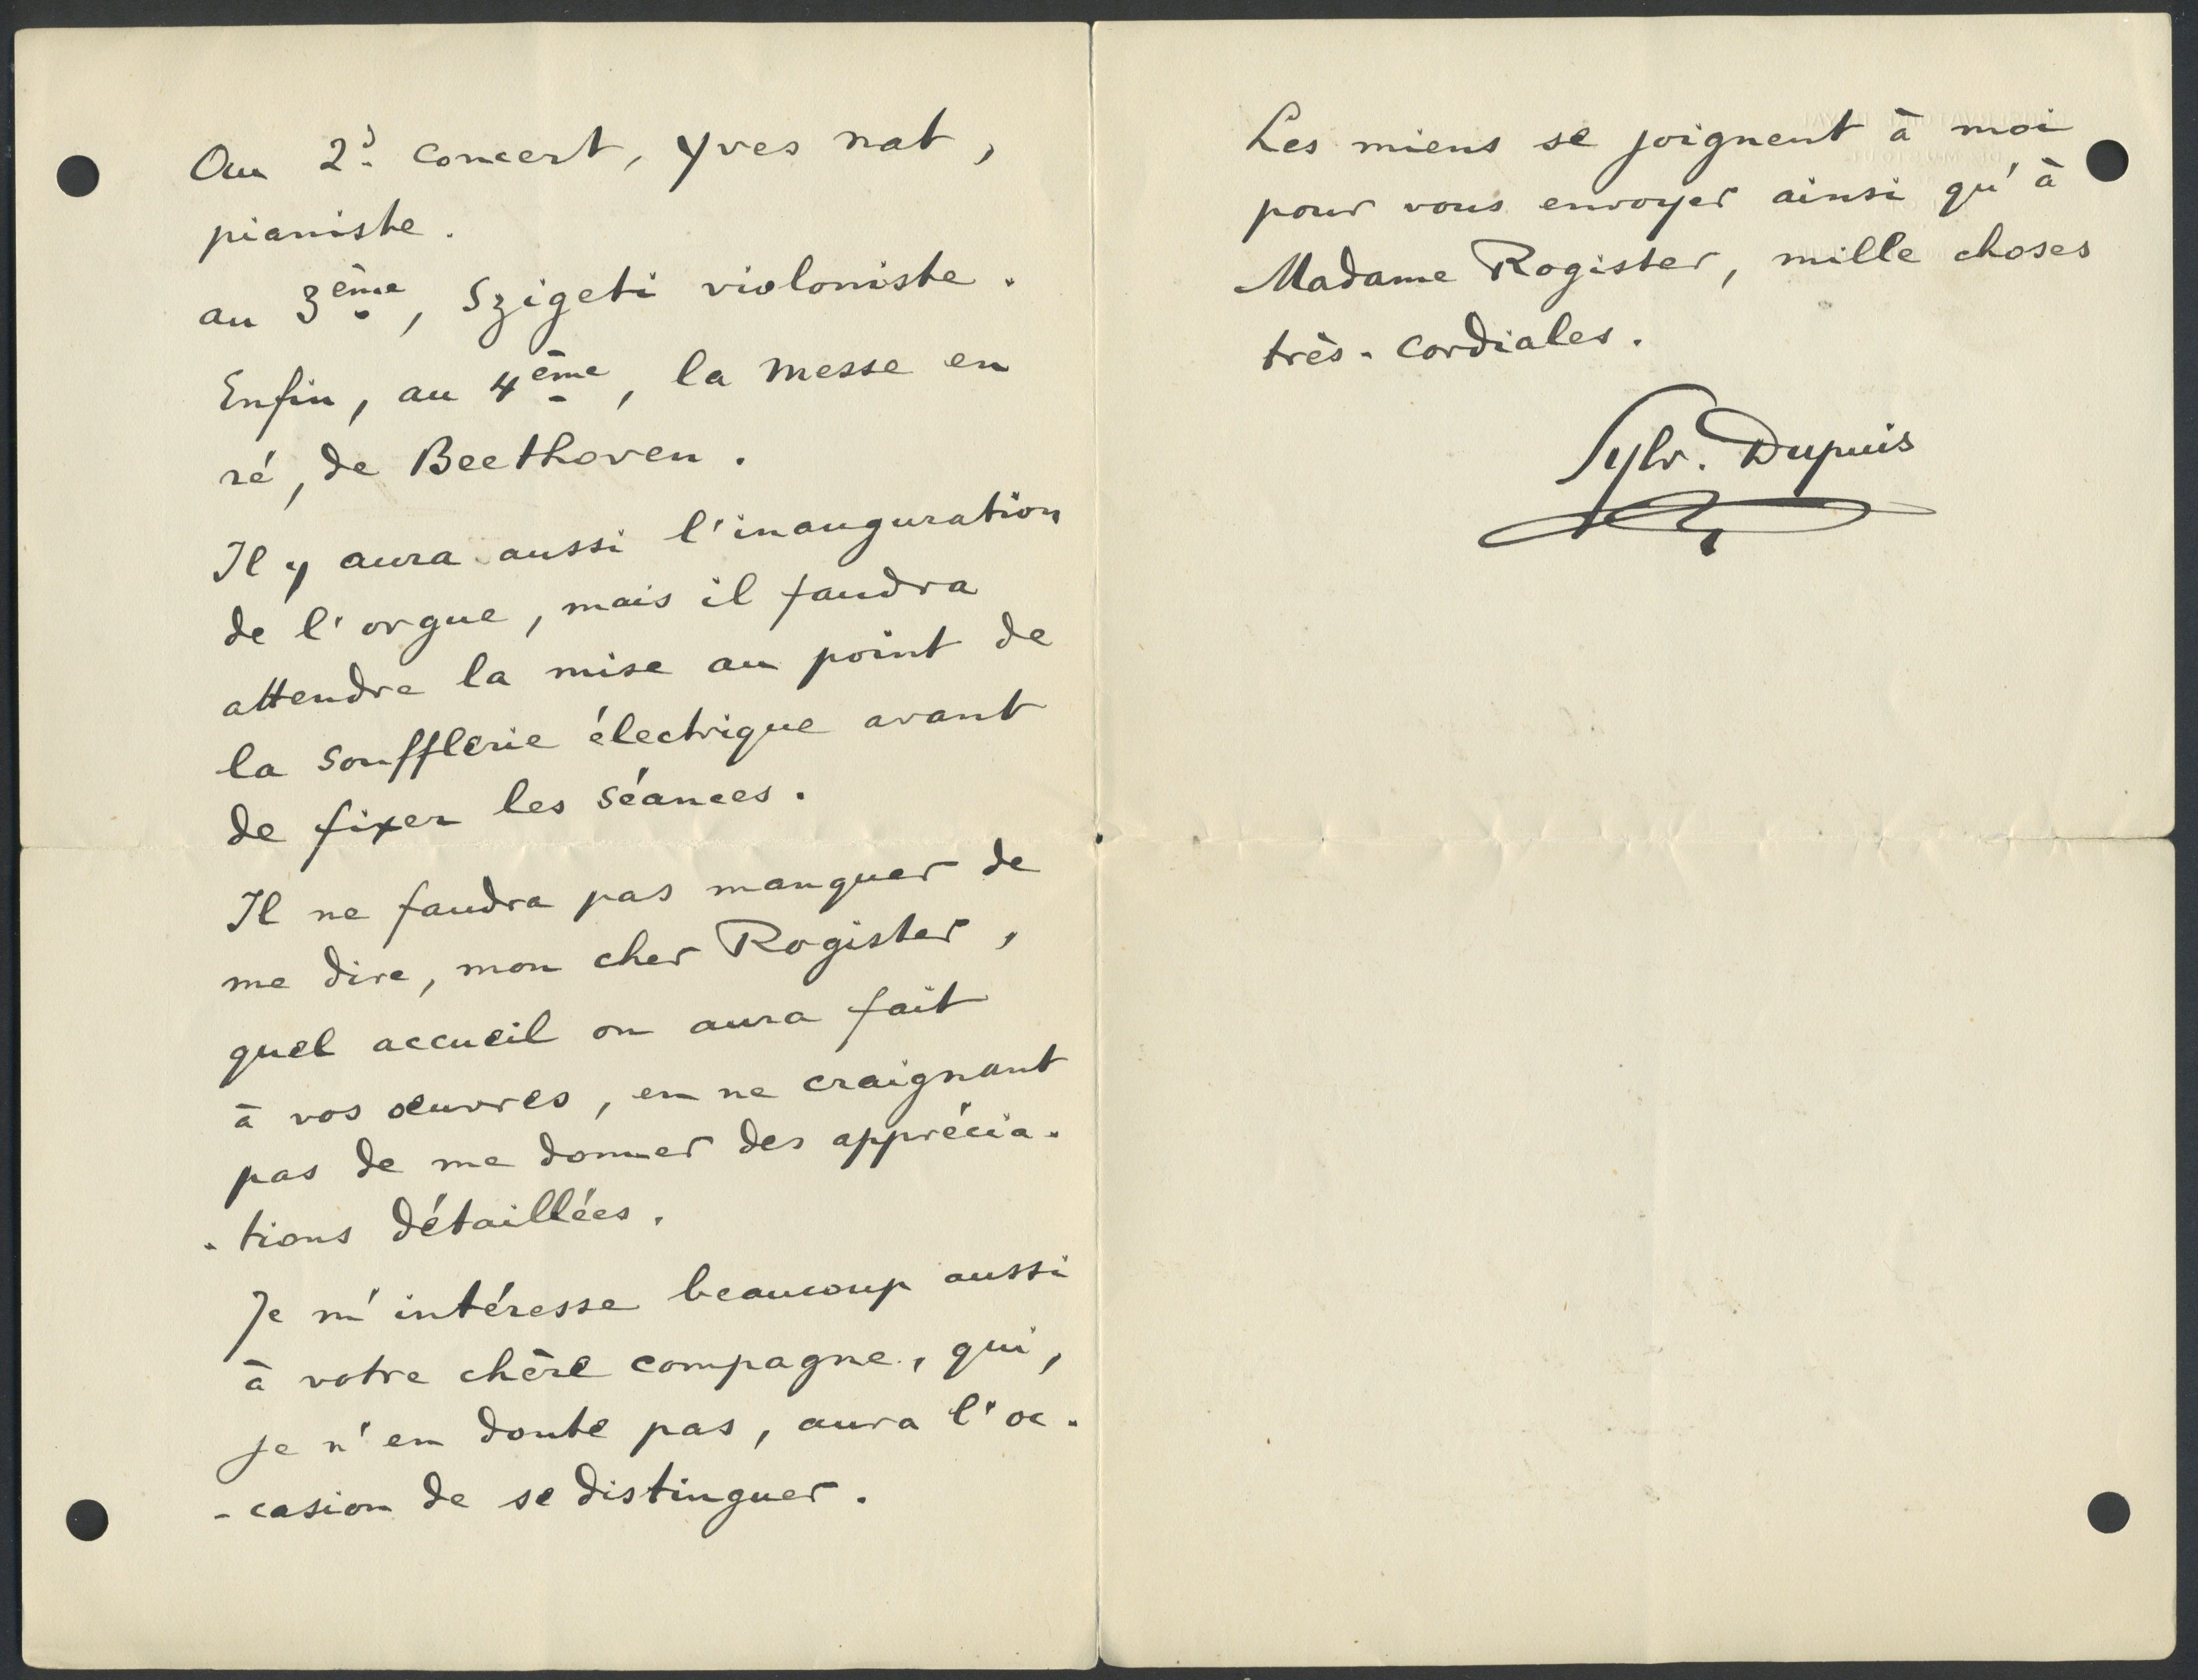 Au 2d concert, Yves nat,
pianiste.
au 3ème, Szigeti violoniste.
Enfin, au 4ème, la messe en
ré, de Beethoven.
Il y aura aussi l'inauguration
de l'orgue, mais il faudra
attendre la mise au point de
la soufflerie électrique avant
de fixer les séances.
Il ne faudra pas manquer de
me dire, mon cher Rogister,
quel accueil on aura fait
à vos œuvres, en ne craignant
pas de me donner des apprécia-
-tions détaillées.
Je m'intéresse beaucoup aussi
à votre chère compagne, qui,
je n'en doute pas, aura l'oc-
-casion de se distinguer.
Les miens se joignent à moi
pour vous envoyer ainsi qu'à
Madame Rogister, mille choses
très-cordiales.
Sylv. Dupuis